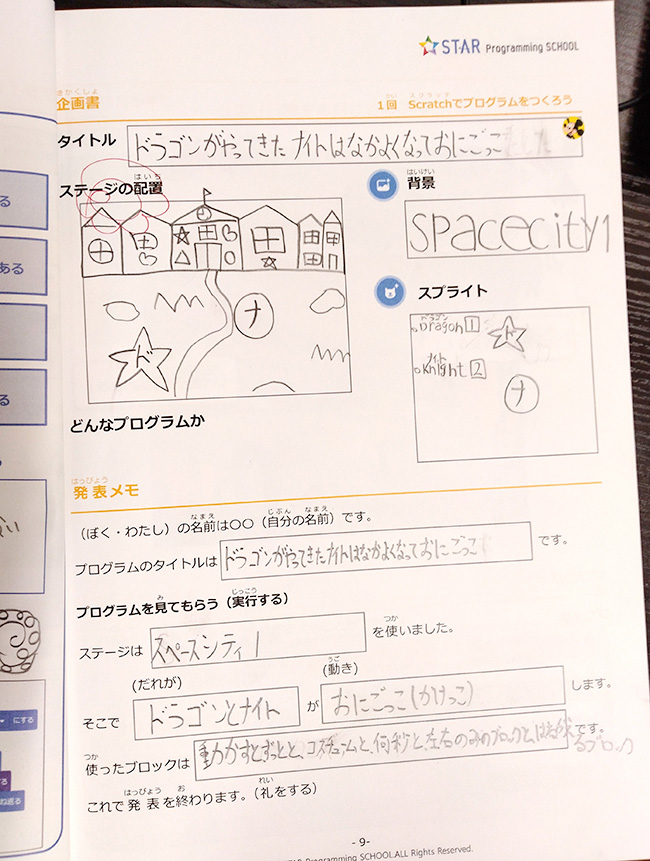 STAR Programming SCHOOL
きかくしょ
企画書
かい スクラッチ
1回 Scratchでプログラムをつくろう
タイトル ドラゴンがやってきた ナイトはなかよくなっておにごっこ
はいち
ステージの配置
はいけい
背景
spacecity1
スプライト
ドラゴン
Dragon 1
ド
ナイト
Knight 2
ナ
ナ
ド
どんなプログラムか
はっぴょう
発表メモ
なまえ じぶん なまえ
（ぼく・わたし）の名前は〇〇（自分の名前）です。
プログラムのタイトルは ドラゴンがやってきたナイトはなかよくなっておにごっこ です。
み じっこう
プログラムを見てもらう（実行する）
つか
ステージは スペースシティ1 を使いました。
うご
(だれが) (動き)
そこで ドラゴンとナイト が おにごっこ(かけっこ) します。
つか
使ったブロックは 動かすとずっとと、コスチュームと、何秒と、左右のみのブロックと、 です。
るブロック
はっぴょう お れい
これで発表を終わります。（礼をする）
- 9-
STAR Programming SCHOOL.ALL Rights Reserved.
る
ある
る
にする
ね返る